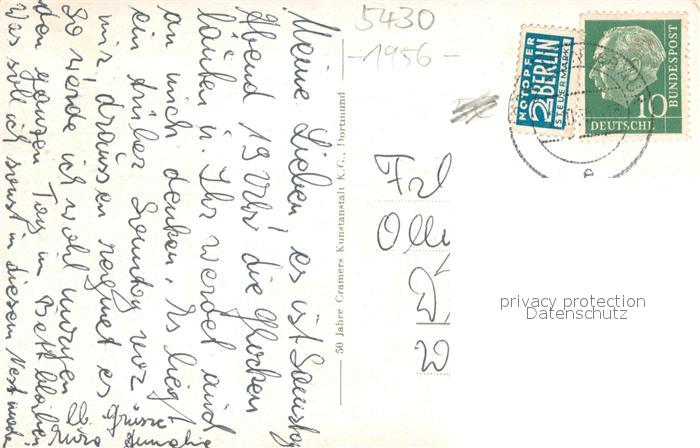 5430
-1956-
NOTOPFER
2 BERLIN
STEUERMARKE
10
DEUTSCHE
BUNDESPOST
Meine Lieben! es ist Samstag
Abend 19 Uhr! die Glocken
läuten u. Ihr werdet auch
an mich denken. Es liegt
ein trüber Sonntag vor
mir, draussen regnet es
So werde ich wohl morgen
den ganzen Tag im Bett bleiben
Was soll ich sonst in diesem Nest machen
Lb. Grüsse
50 Jahre Cramers Kunstanstalt K.G., Dortmund
Frl
Olle
W
privacy protection
Datenschutz